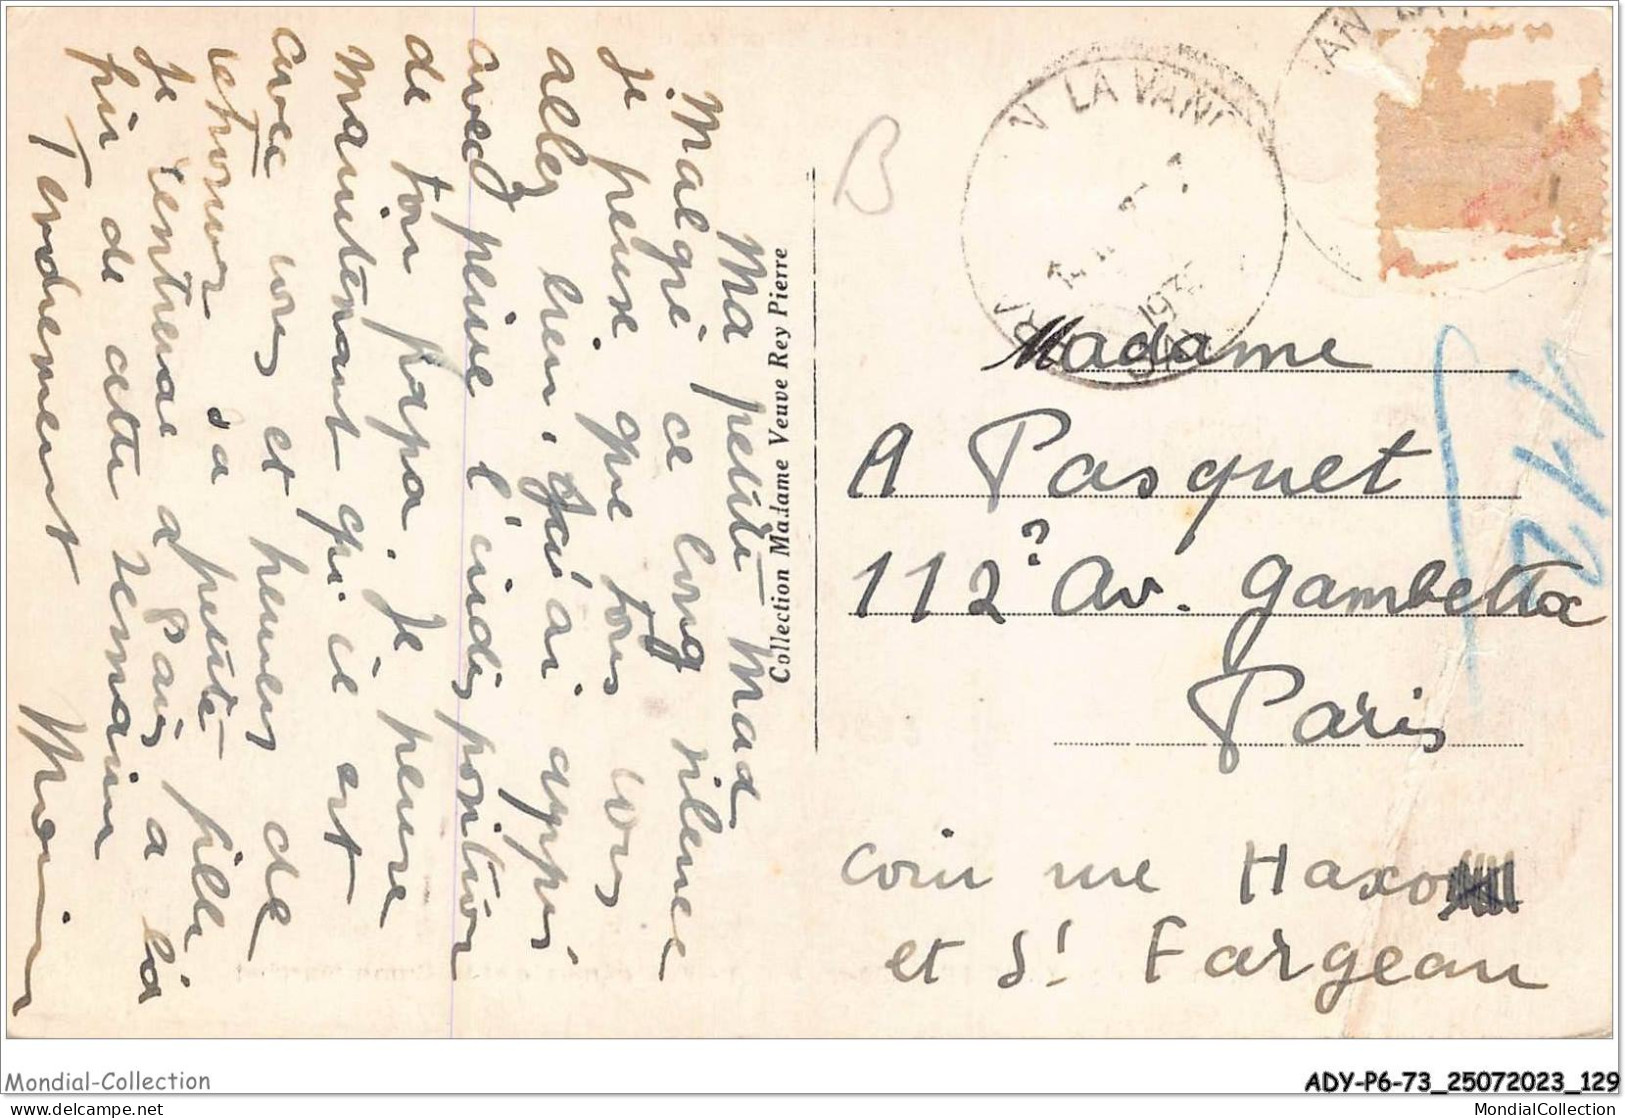 Ma petite Mad
Malgré ce long silence
je pense que tous vous
allez bien. J'ai appris
avec peine l'indisposition
de ton papa. Je pense
maintenant qu'il est
avec vous et heureux de
retrouver sa petite fille
Je rentrerai à Paris à la
fin de cette semaine
Tendrement
Collection Madame Veuve Rey Pierre
B
LA VANO
193
Madame
A Pasquet
112 Av. Gambetta
Paris
coin rue Haxo
et St Fargeau
112
Mondial-Collection
ADY-P6-73_25072023_129
MondialCollection